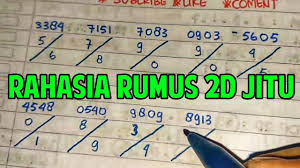 SUBCRIBE *LIKE * COMENT
3384 7151 7083 0903 -5605
5/6 7/8 0/1 9/0 4/5
RAHASIA RUMUS 2D JITU
4548 0540 9809 8913
0/1 8/9 3/4